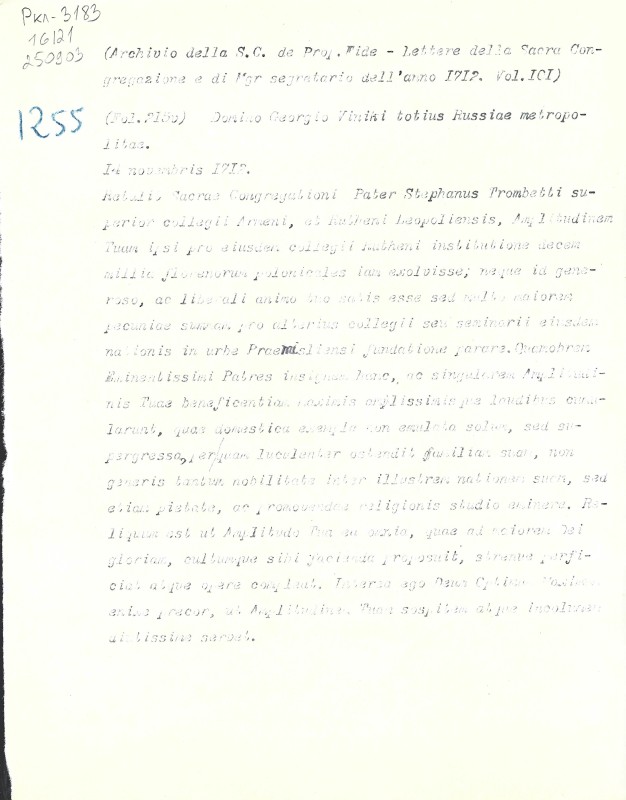 Ркл-3183
16/21
250903
(Archivio della S.C. de Prop. Fide - Lettere della Sacra Con-
gregazione e di Mgr segretario dell'anno 1712. Vol.ICI)
1255
(Fol. ) Domino Georgio Viniki totius Russiae metropo-
litae.
14 novembris 1712.
Retulit Sacrae Congregationi Pater Stephanus Trombetti su-
perior collegii Armeni, et Rutheni Leopoliensis, Amplitudinem
Tuam ipsi pro eiusdem collegii Rutheni institutione decem
millia florenorum polonicales iam exolvisse; neque id gene-
roso, ac liberali animo tuo satis esse sed multo maiorem
pecuniae summam pro alterius collegii seu seminarii eiusdem
nationis in urbe Praemisliensi fundatione parare. Quamobrem
Eminentissimi Patres insignem hanc, ac singularem Amplitudi-
nis Tuae beneficentiam maximis amplissimisque laudibus cumu-
larunt, quae domestica exempla non emulata solum, sed su-
pergressa, perquam luculenter ostendit familiam suam, non
generis tantum nobilitate inter illustrem nationem suam, sed
etiam pietate, ac promovendae religionis studio eminere. Re-
liquum est ut Amplitudo Tua ea omnia, quae ad maiorem Dei
gloriam, cultumque sibi facienda proposuit, strenue perfi-
ciat atque opere compleat. Interea ego Deum Optimum Maximum
enixe precor, ut Amplitudinem Tuam sospitem atque incolumem
diutissime servet.